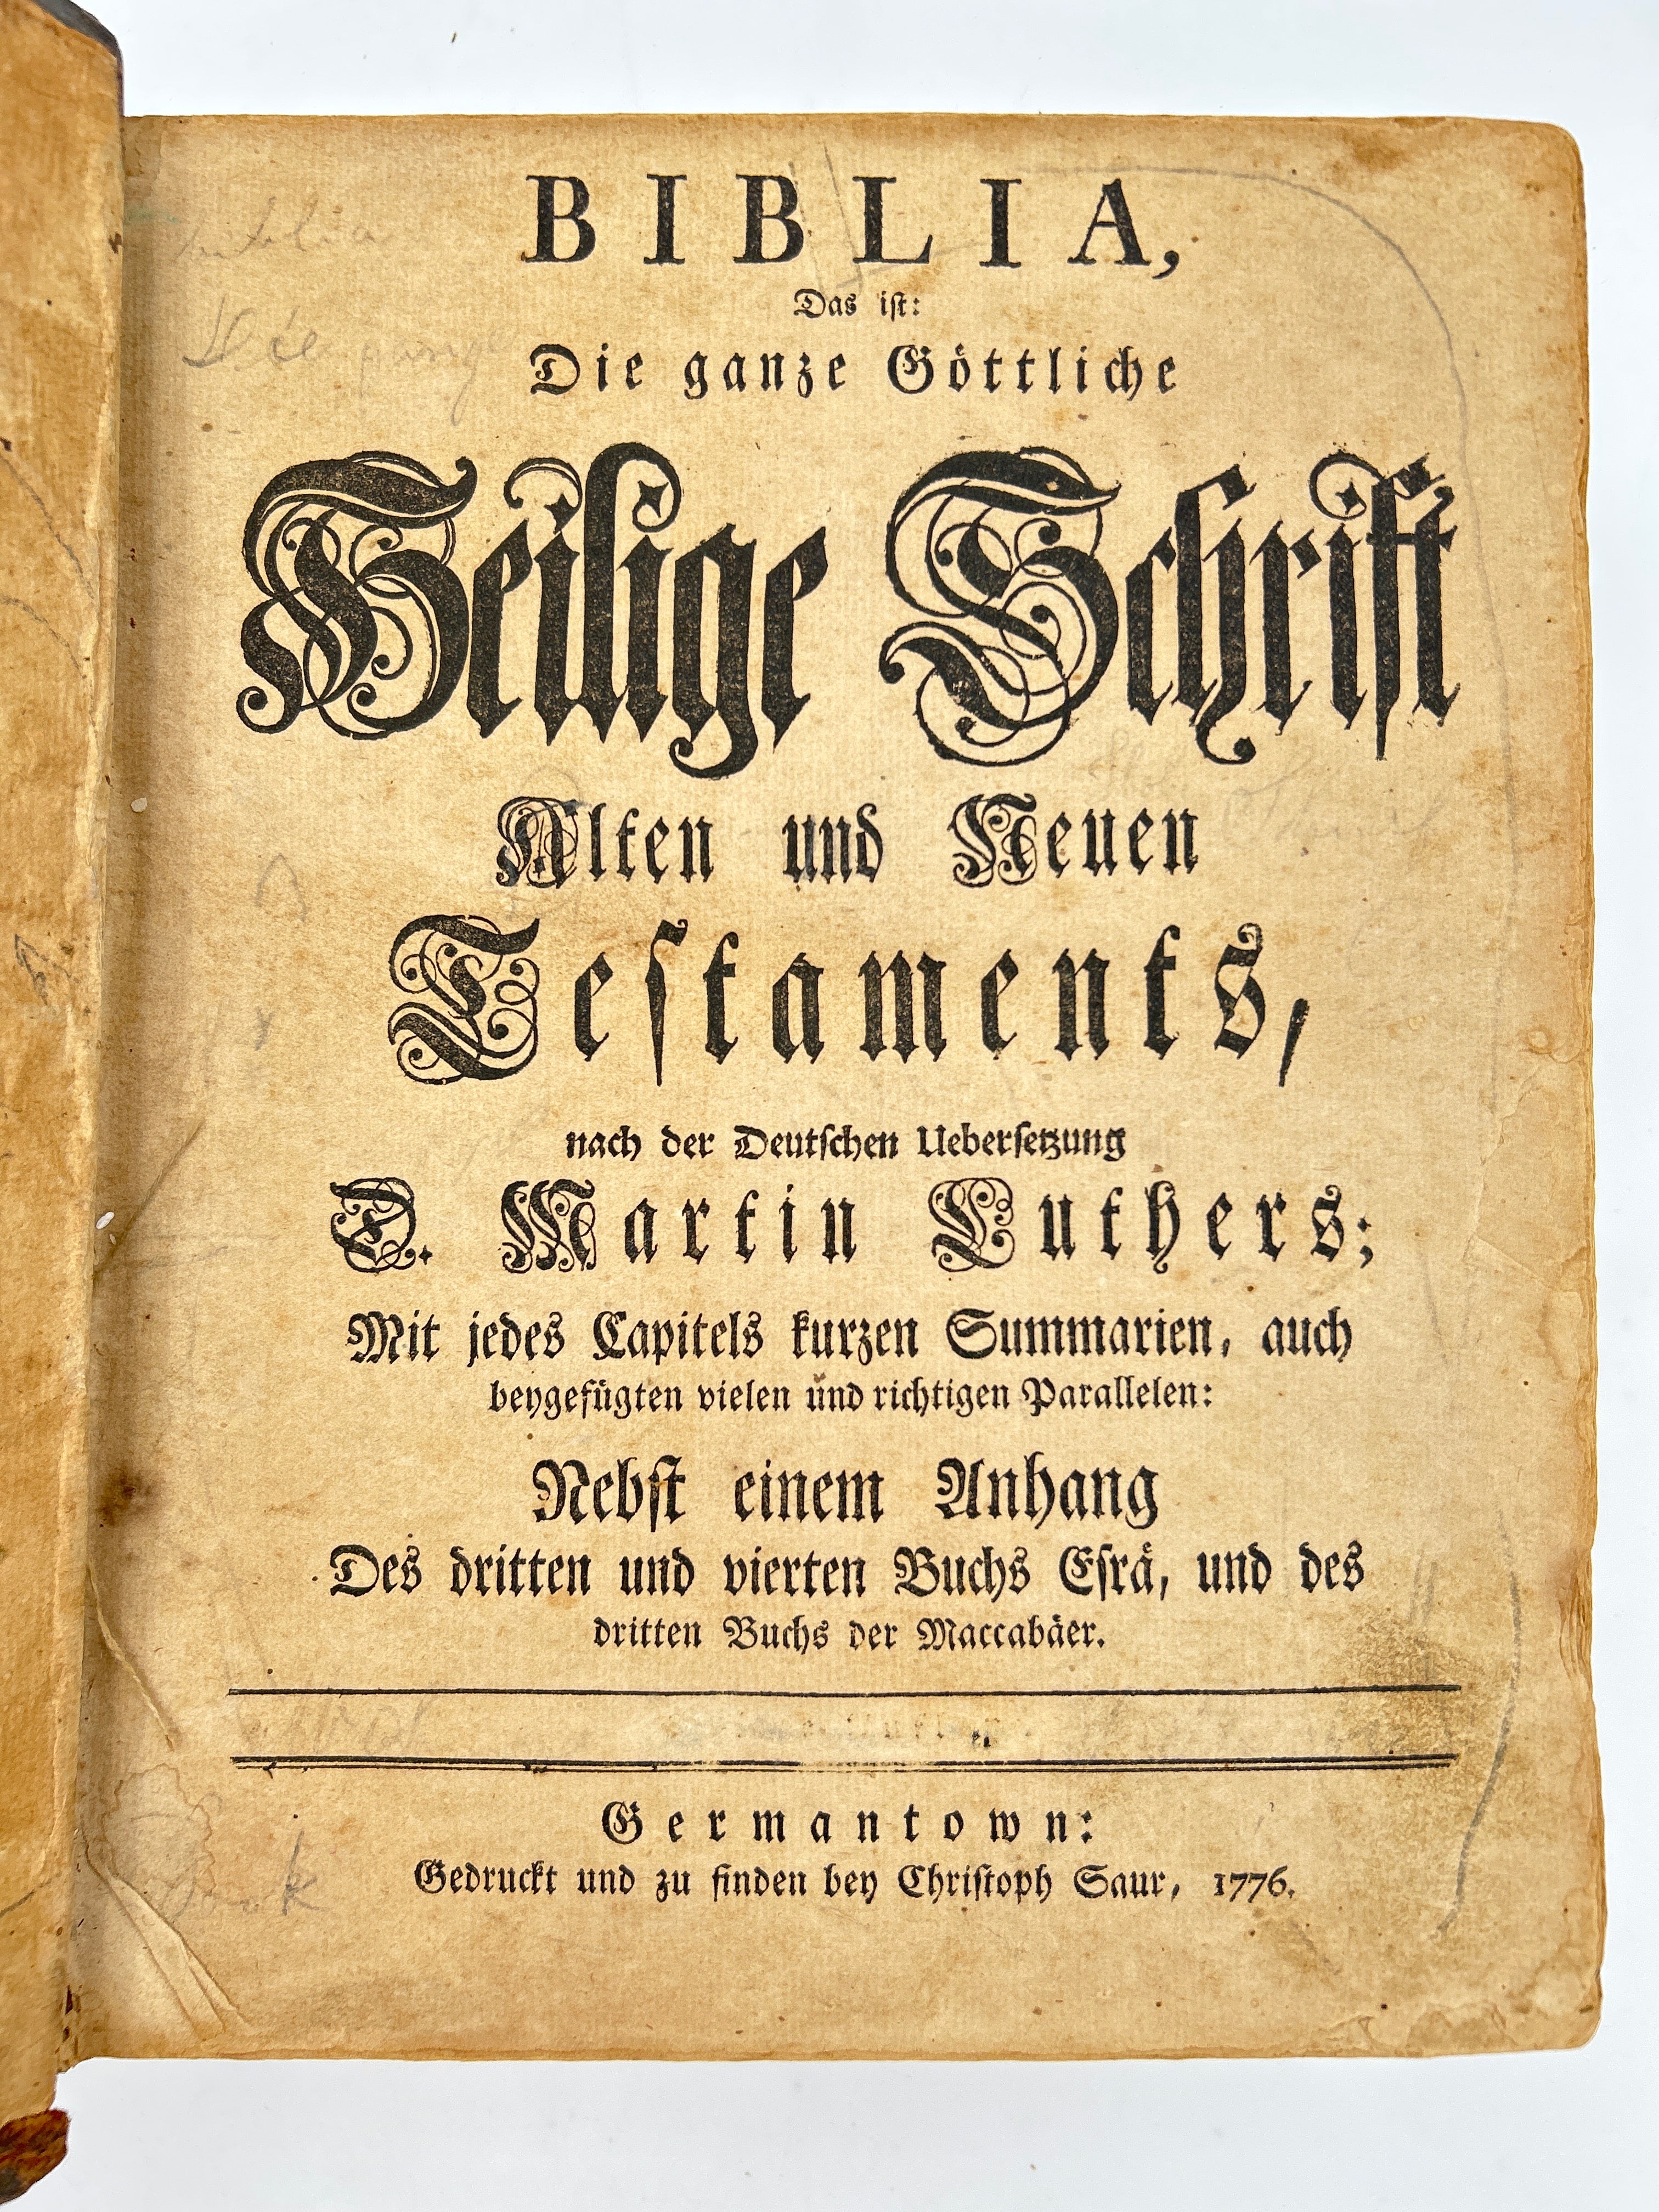 BIBLIA,
Das ist:
Die ganze Göttliche
Heilige Schrift
Alten und Neuen
Testaments,
nach der Deutschen Uebersetzung
D. Martin Luthers;
Mit jedes Capitels kurzen Summarien, auch
beygefügten vielen und richtigen Parallelen:
Nebst einem Anhang
Des dritten und vierten Buchs Esrä, und des
dritten Buchs der Maccabäer.
Germantown:
Gedruckt und zu finden bey Christoph Saur, 1776.